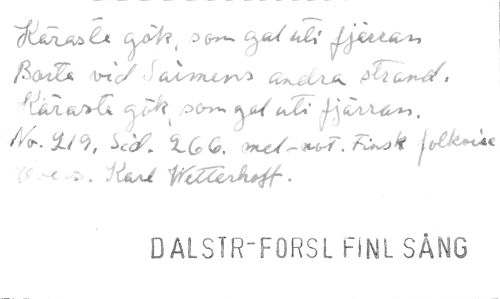 Käraste gök, som gal uti fjärran
Borta vid Saimens andra strand.
Käraste gök, som gal uti fjärran.
No. 219, Sid. 266. mel-not. Finsk folkvise
Övers. Karl Wetterhoff.
DALSTR-FORSL FINL SÅNG